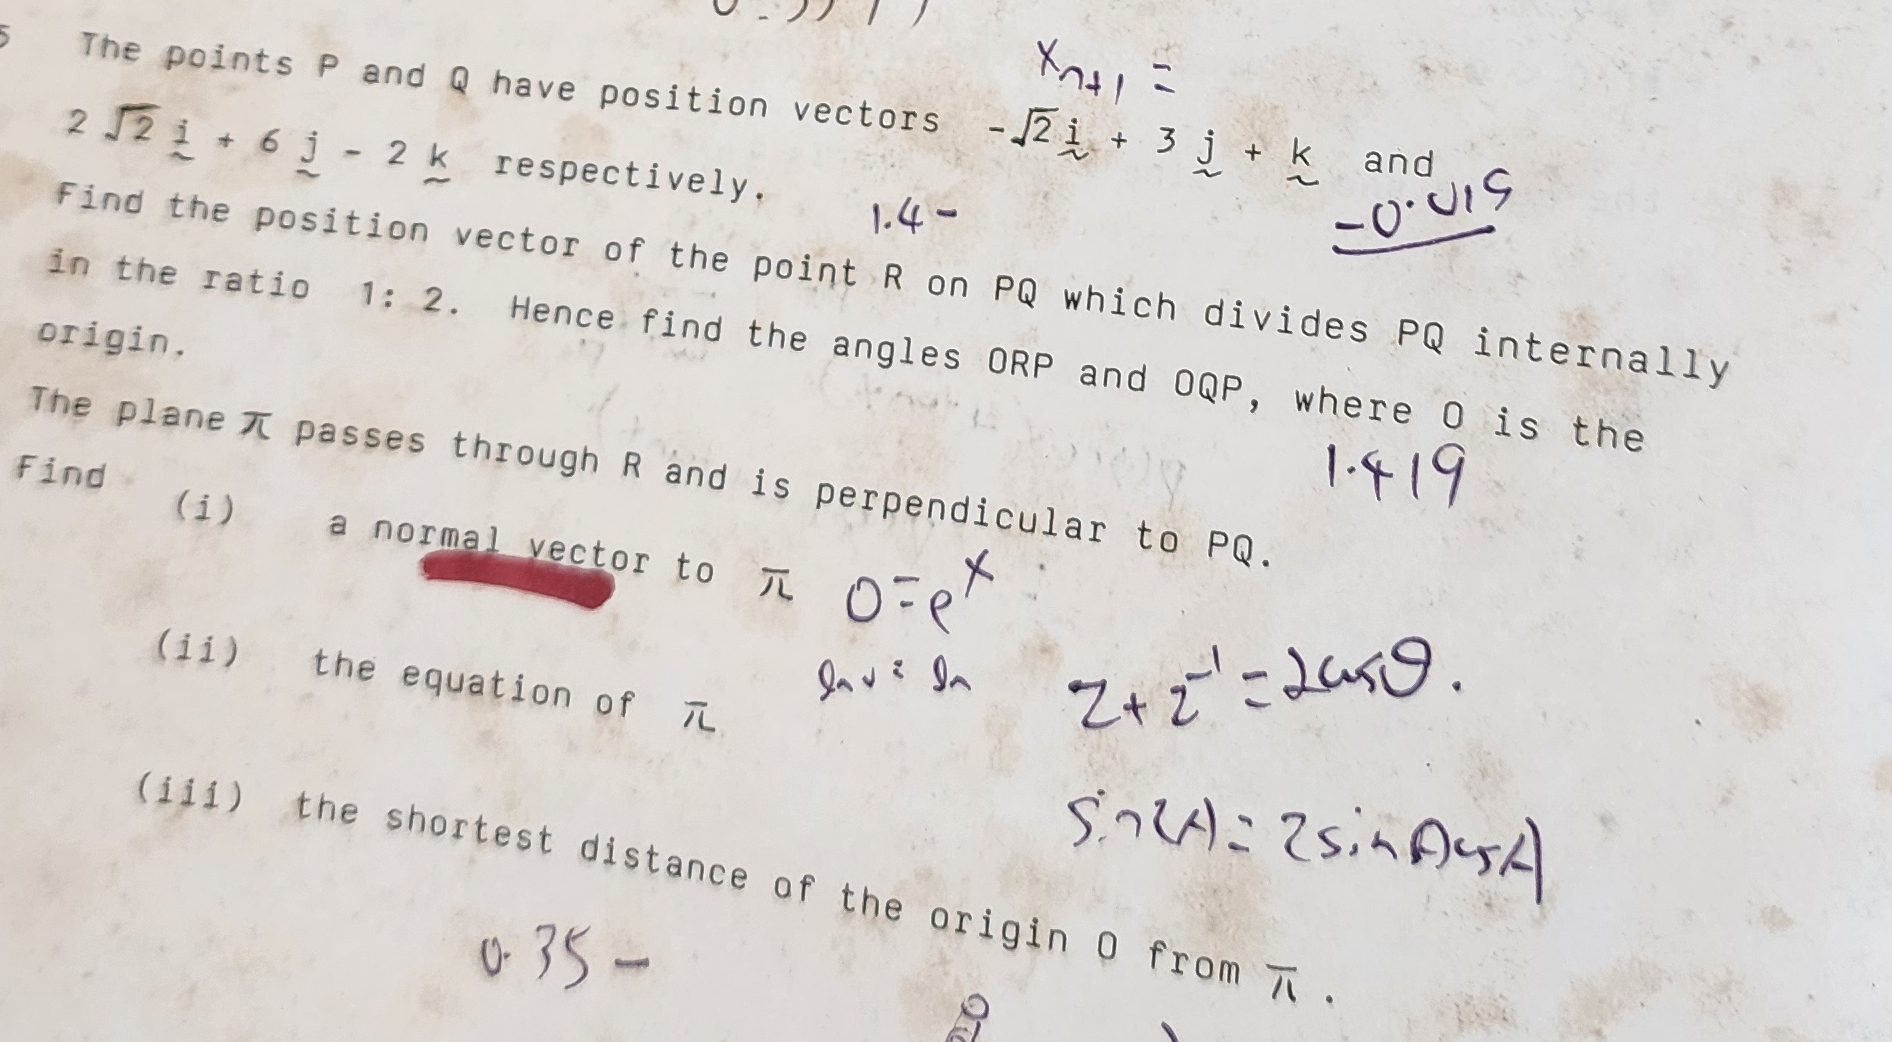 5 The points P and Q have position vectors -√2 i + 3 j + k and
2 √2 i + 6 j - 2 k respectively.
Find the position vector of the point R on PQ which divides PQ internally
in the ratio 1: 2. Hence find the angles ORP and OQP, where O is the
origin.
The plane π passes through R and is perpendicular to PQ.
Find (i) a normal vector to π
(ii) the equation of π
(iii) the shortest distance of the origin O from π.
xn+1 =
1.4 -
-0.019
1.419
0 = e^x
z + z^-1 = 2cosθ.
sin2A = 2sinAcosA
0.35 -